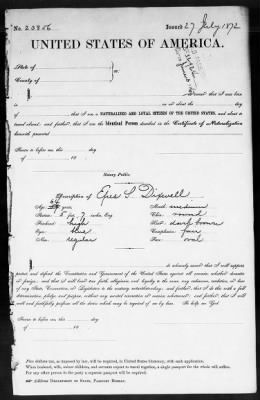 No. 20856 Issued 27 July 1872
UNITED STATES OF AMERICA.
State of
County of ss.
I, do swear that I was born
in on or about the day
of ; that I am a NATURALIZED AND LOYAL CITIZEN OF THE UNITED STATES, and about to
travel abroad; and further that I am the Identical Person described in the Certificate of Naturalization
herewith presented
Sworn to before me, this day
of 18
Notary Public.
Description of Epes S. Dixwell
Age: 64 years. Mouth: medium
Stature: 5 feet 7 inches, Eng. Chin: round
Forehead: high Hair: dark brown
Eyes: blue Complexion: fair
Nose: regular Face: oval
I, do solemnly swear that I will support,
protect, and defend the Constitution and Government of the United States against all enemies, whether domestic
or foreign; and that I will bear true faith, allegiance, and loyalty to the same, any ordinance, resolution, or law
of any State, Convention, or Legislature to the contrary notwithstanding; and further, that I do this with a full
determination, pledge, and purpose, without any mental reservation or evasion whatsoever; and further, that I will
well and faithfully perform all the duties which may be required of me by law. So help me God.
Sworn to before me, this day
of 18
Five dollars tax, as imposed by law, will be required, in United States Currency, with each application.
When husband, wife, minor children, and servants expect to travel together, a single passport for the whole will suffice.
For any other person in the party a separate passport will be required.
Address DEPARTMENT OF STATE, PASSPORT BUREAU.